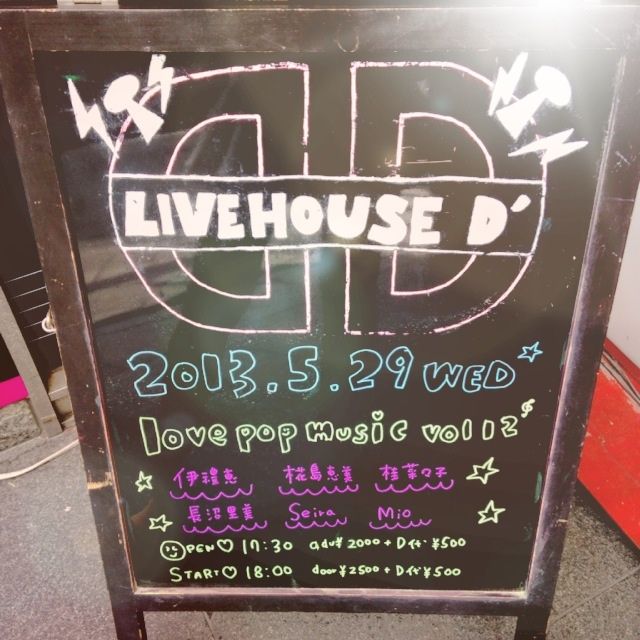 LIVEHOUSE D'
2013.5.29 WED
love pop music vol 12
伊禮恵 椛島恵美 桂菜々子
長沼里美 Seira Mio
OPEN♡ 17:30 adv¥2000+D代¥500
START♡ 18:00 door¥2500+D代¥500